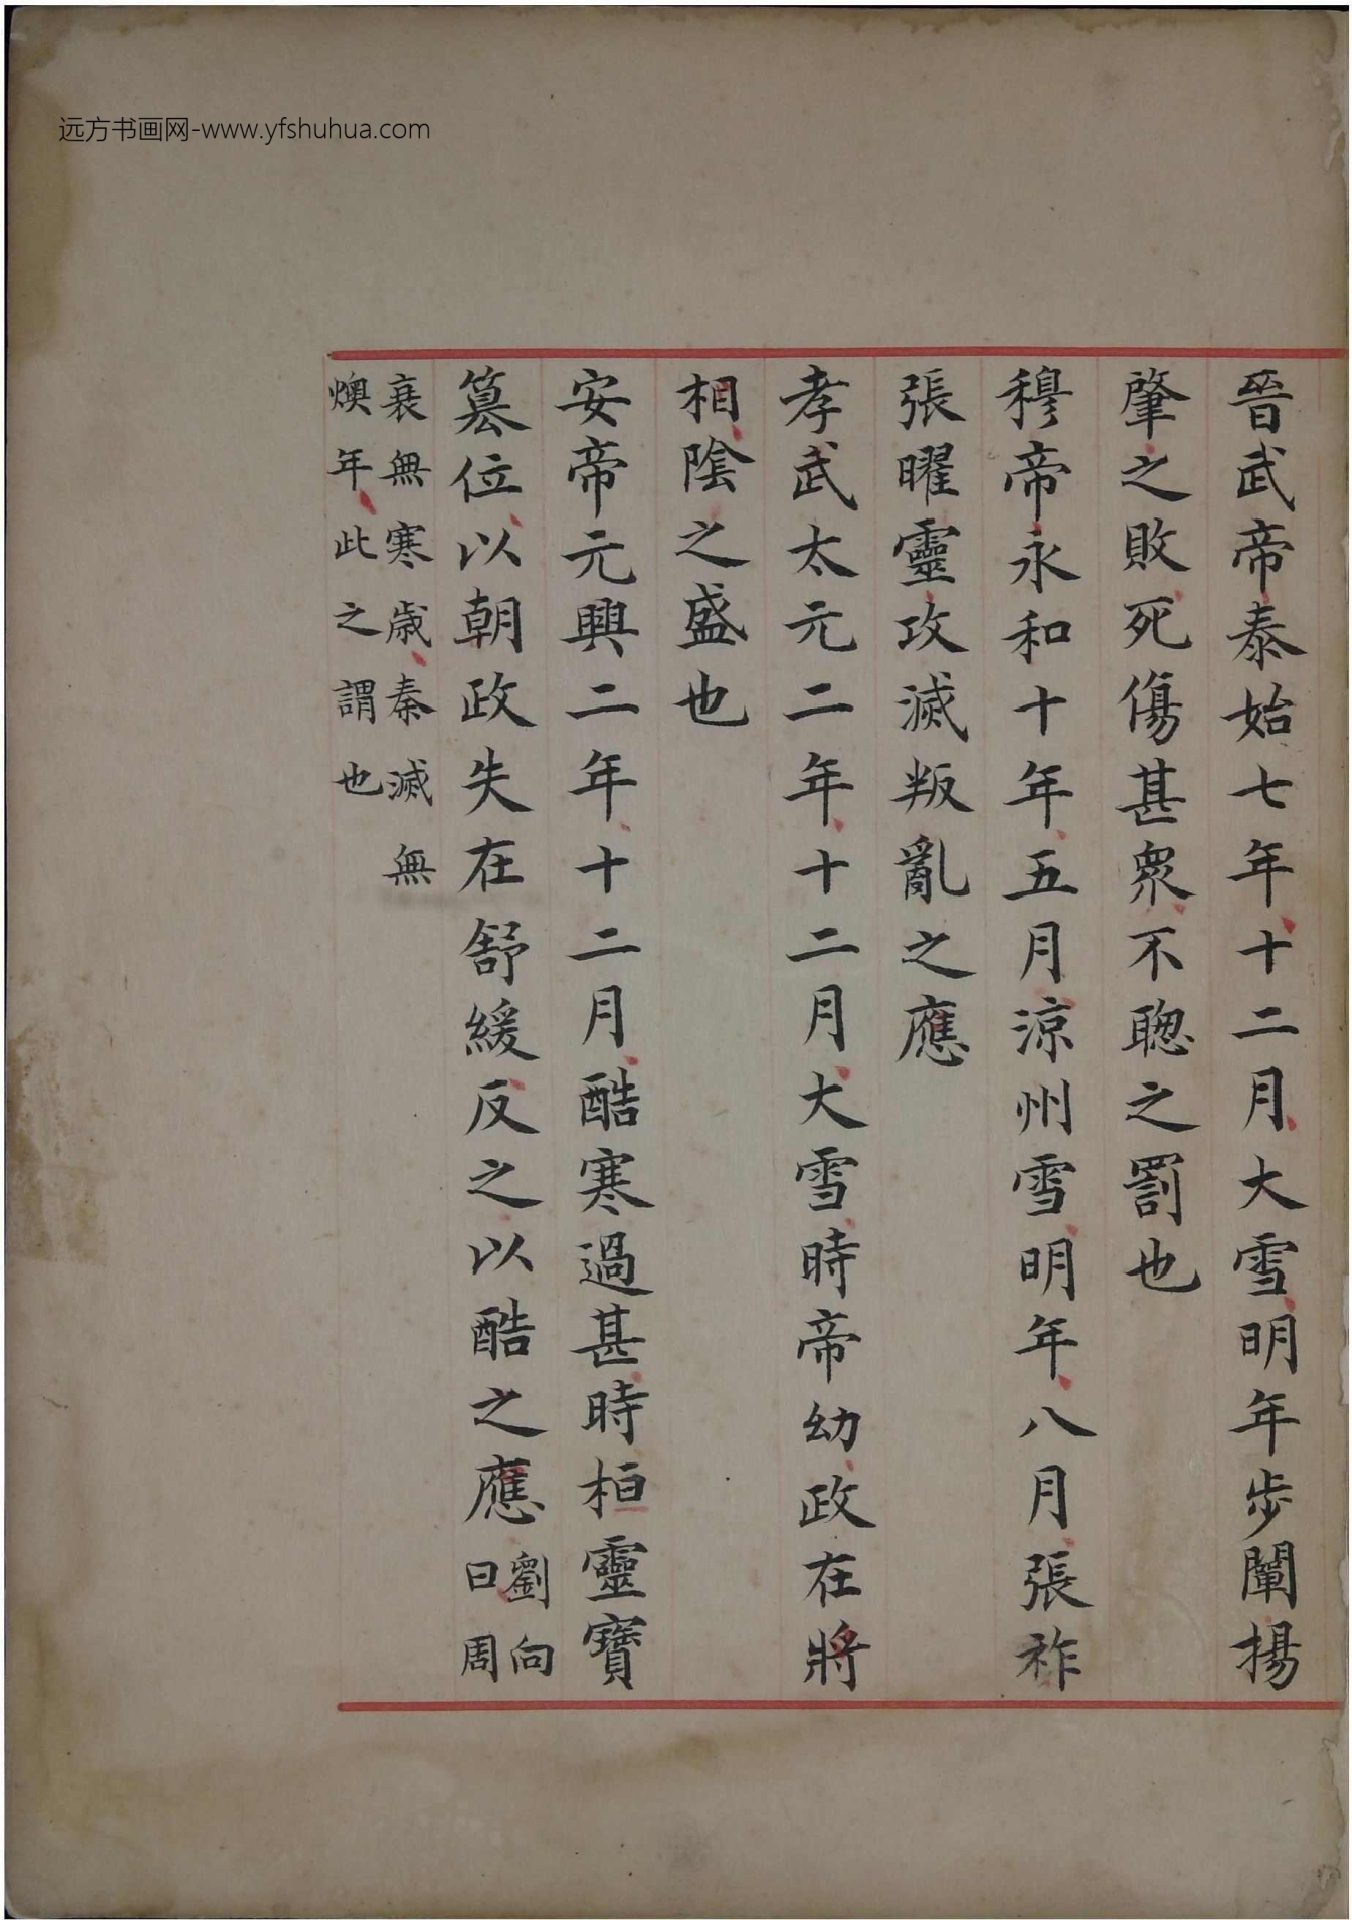 远方书画网-www.yfshuhua.com
晉武帝泰始七年十二月大雪明年步闡揚
肇之敗死傷甚衆不聰之罰也
穆帝永和十年五月涼州雪明年八月張祚
張曜靈攻滅叛亂之應
孝武太元二年十二月大雪時帝幼政在將
相陰之盛也
安帝元興二年十二月酷寒過甚時桓靈寶
篡位以朝政失在舒緩反之以酷之應劉向
曰周
衰無寒歲秦滅無
燠年此之謂也